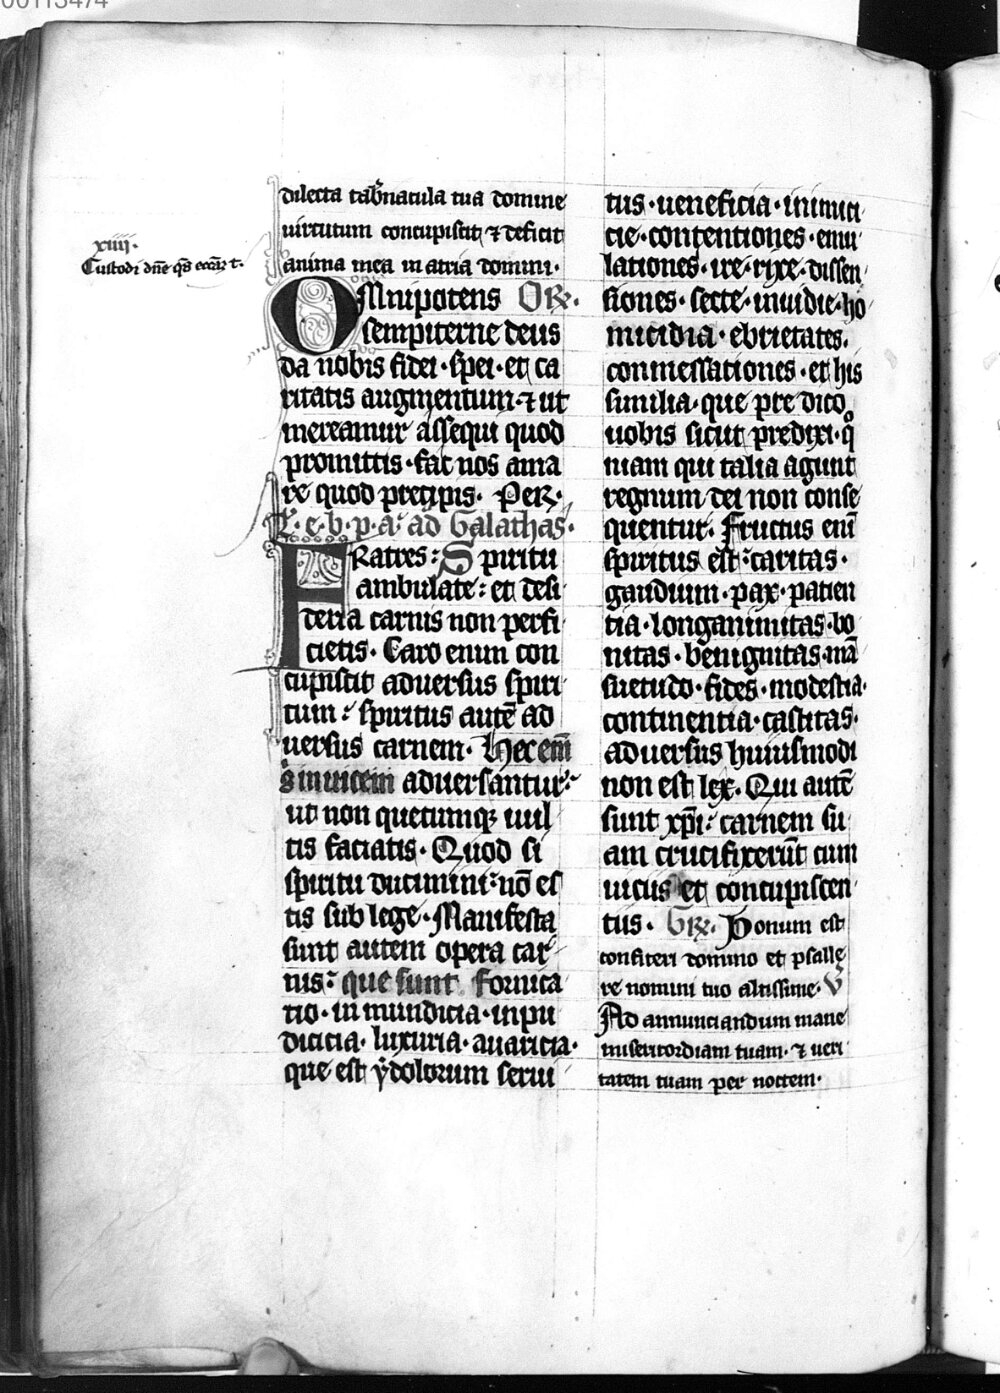 00113474
xiiii·
Custodi dñe q̄s eccaz t.
dilecta tab̄nacula tua domine
uirtutum concupiscit ⁊ deficit
anima mea in atria domini·
OMnipotens OR·
sempiterne deus
da nobis fidei· spei· et ca
ritatis augmentum· ⁊ ut
mereamur assequi quod
promittis· fac nos ama
re quod precipis· Per·
L· e· b· p· a· ad Galathas·
FRatres: Spiritu
ambulate: et desi
deria carnis non perfi
cietis· Caro enim con
cupiscit aduersus spiri
tum: spiritus autē ad
uersus carnem· Hec em̄
s inuicem aduersantur:
ut non quecumqȝ uul
tis faciatis· Quod si
spiritu ducimini: nō es
tis sub lege· Manifesta
sunt autem opera car
nis: que sunt fornica
tio· in mundicia· inpu
dicicia· luxuria· auaricia·
que est ẏdolorum serui
tus· ueneficia· inimici
cie· contentiones· emu
lationes· ire· rixe· dissen
siones· secte· inuidie· ho
micidia· ebrietates·
conmessationes· et his
similia· que pre dico
uobis sicut predixi· qͦ
niam qui talia agunt
regnum dei non conse
quentur· Fructus eni̅
spiritus est: caritas·
gaudium· pax· patien
tia· longanimitas· bo
nitas· benignitas· mā
suetudo· fides· modestia·
continentia· castitas·
aduersus huiusmodi
non est lex· Qui autē
sunt xp̄i: carnem su
am crucifixerūt cum
uicijs et concupiscen
tijs· GR· Bonum est
confiteri domino et psalle
re nomini tuo altissime· V̄
Ad annunciandum mane
misericordiam tuam· ⁊ ueri
tatem tuam per noctem·